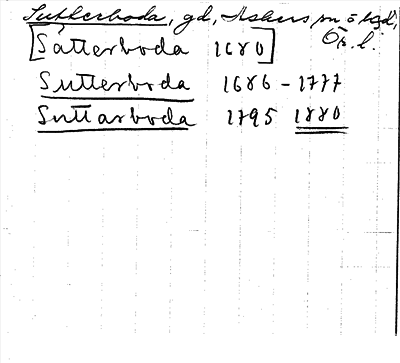 Sutterboda, gd, Askers sn o. hd,
Ör. l.
[Såtterboda 1680]
Sutterboda 1686 - 1777
Suttarboda 1795 1880